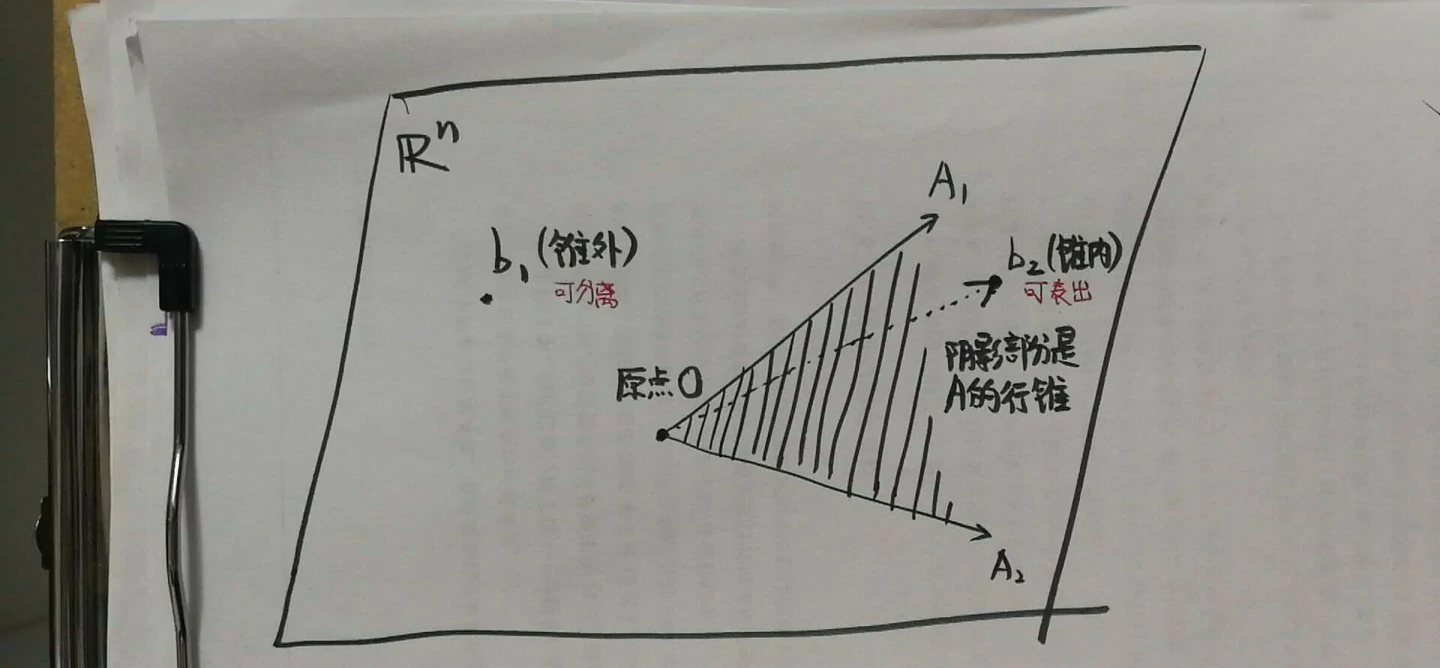 ℝⁿ
A₁
b₁(锥外)
可分离
b₂(锥内)
可表出
阴影部分是
A的行锥
原点O
A₂